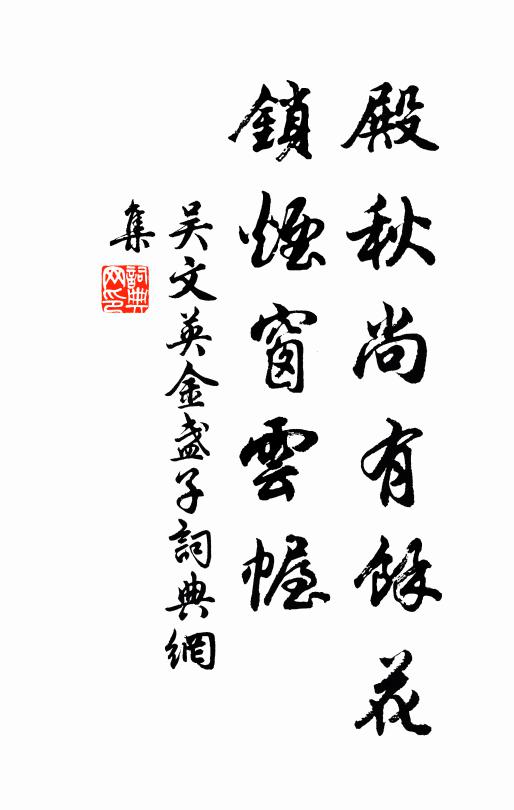 殿秋尚有餘花
鎖煙窗雲幄
吴文英金盏子詞典網
集
詞典網印